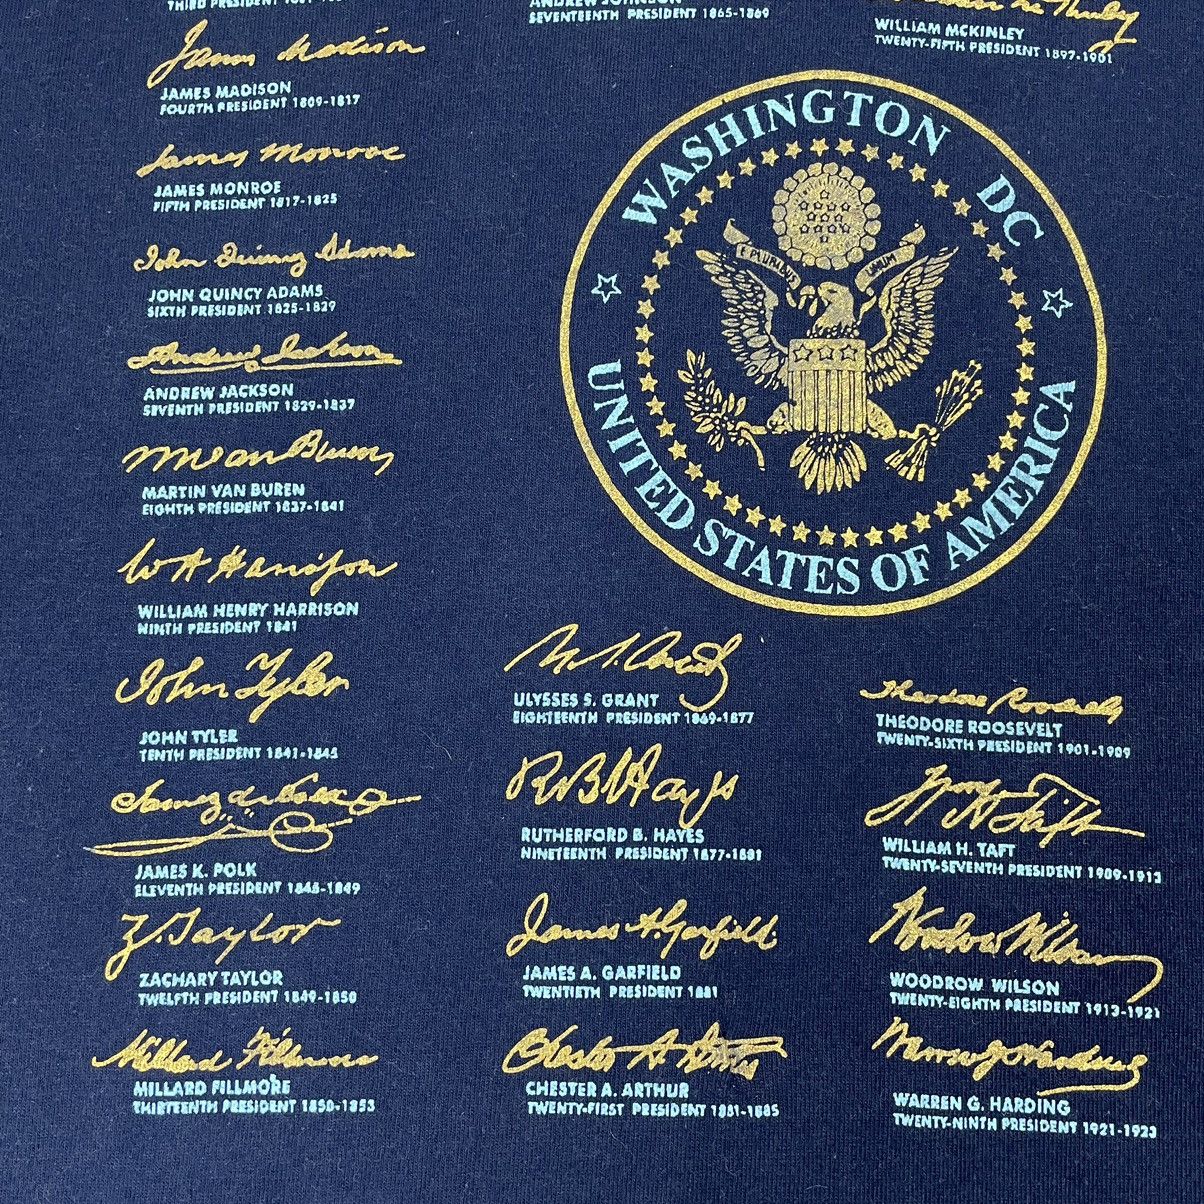 THIRD PRESIDENT
James Madison
JAMES MADISON
FOURTH PRESIDENT 1809-1817
James Monroe
JAMES MONROE
FIFTH PRESIDENT 1817-1825
John Quincy Adams
JOHN QUINCY ADAMS
SIXTH PRESIDENT 1825-1829
Andrew Jackson
ANDREW JACKSON
SEVENTH PRESIDENT 1829-1837
M Van Buren
MARTIN VAN BUREN
EIGHTH PRESIDENT 1837-1841
W H Harrison
WILLIAM HENRY HARRISON
NINTH PRESIDENT 1841
John Tyler
JOHN TYLER
TENTH PRESIDENT 1841-1845
James K. Polk
JAMES K. POLK
ELEVENTH PRESIDENT 1845-1849
Z. Taylor
ZACHARY TAYLOR
TWELFTH PRESIDENT 1849-1850
Millard Fillmore
MILLARD FILLMORE
THIRTEENTH PRESIDENT 1850-1853
ANDREW JOHNSON
SEVENTEENTH PRESIDENT 1865-1869
U. S. Grant
ULYSSES S. GRANT
EIGHTEENTH PRESIDENT 1869-1877
R B Hayes
RUTHERFORD B. HAYES
NINETEENTH PRESIDENT 1877-1881
James A. Garfield
JAMES A. GARFIELD
TWENTIETH PRESIDENT 1881
Chester A Arthur
CHESTER A. ARTHUR
TWENTY-FIRST PRESIDENT 1881-1885
William McKinley
WILLIAM MCKINLEY
TWENTY-FIFTH PRESIDENT 1897-1901
WASHINGTON DC
E PLURIBUS UNUM
UNITED STATES OF AMERICA
Theodore Roosevelt
THEODORE ROOSEVELT
TWENTY-SIXTH PRESIDENT 1901-1909
Wm H Taft
WILLIAM H. TAFT
TWENTY-SEVENTH PRESIDENT 1909-1913
Woodrow Wilson
WOODROW WILSON
TWENTY-EIGHTH PRESIDENT 1913-1921
Warren G Harding
WARREN G. HARDING
TWENTY-NINTH PRESIDENT 1921-1923